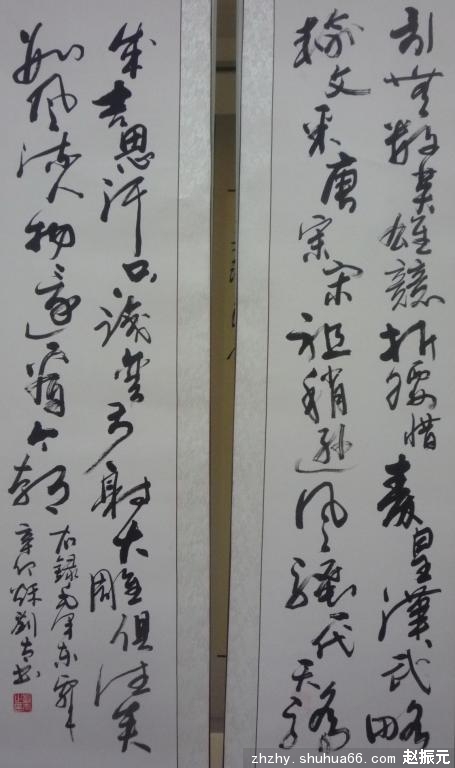 引無數英雄競折腰惜秦皇漢武略
輸文采唐宗宋祖稍遜風騷一代天驕
成吉思汗只識彎弓射大雕俱往矣
數風流人物還看今朝
右錄毛澤東
辛卯秋劉書
zhzhy.shuhua66.com 赵振元